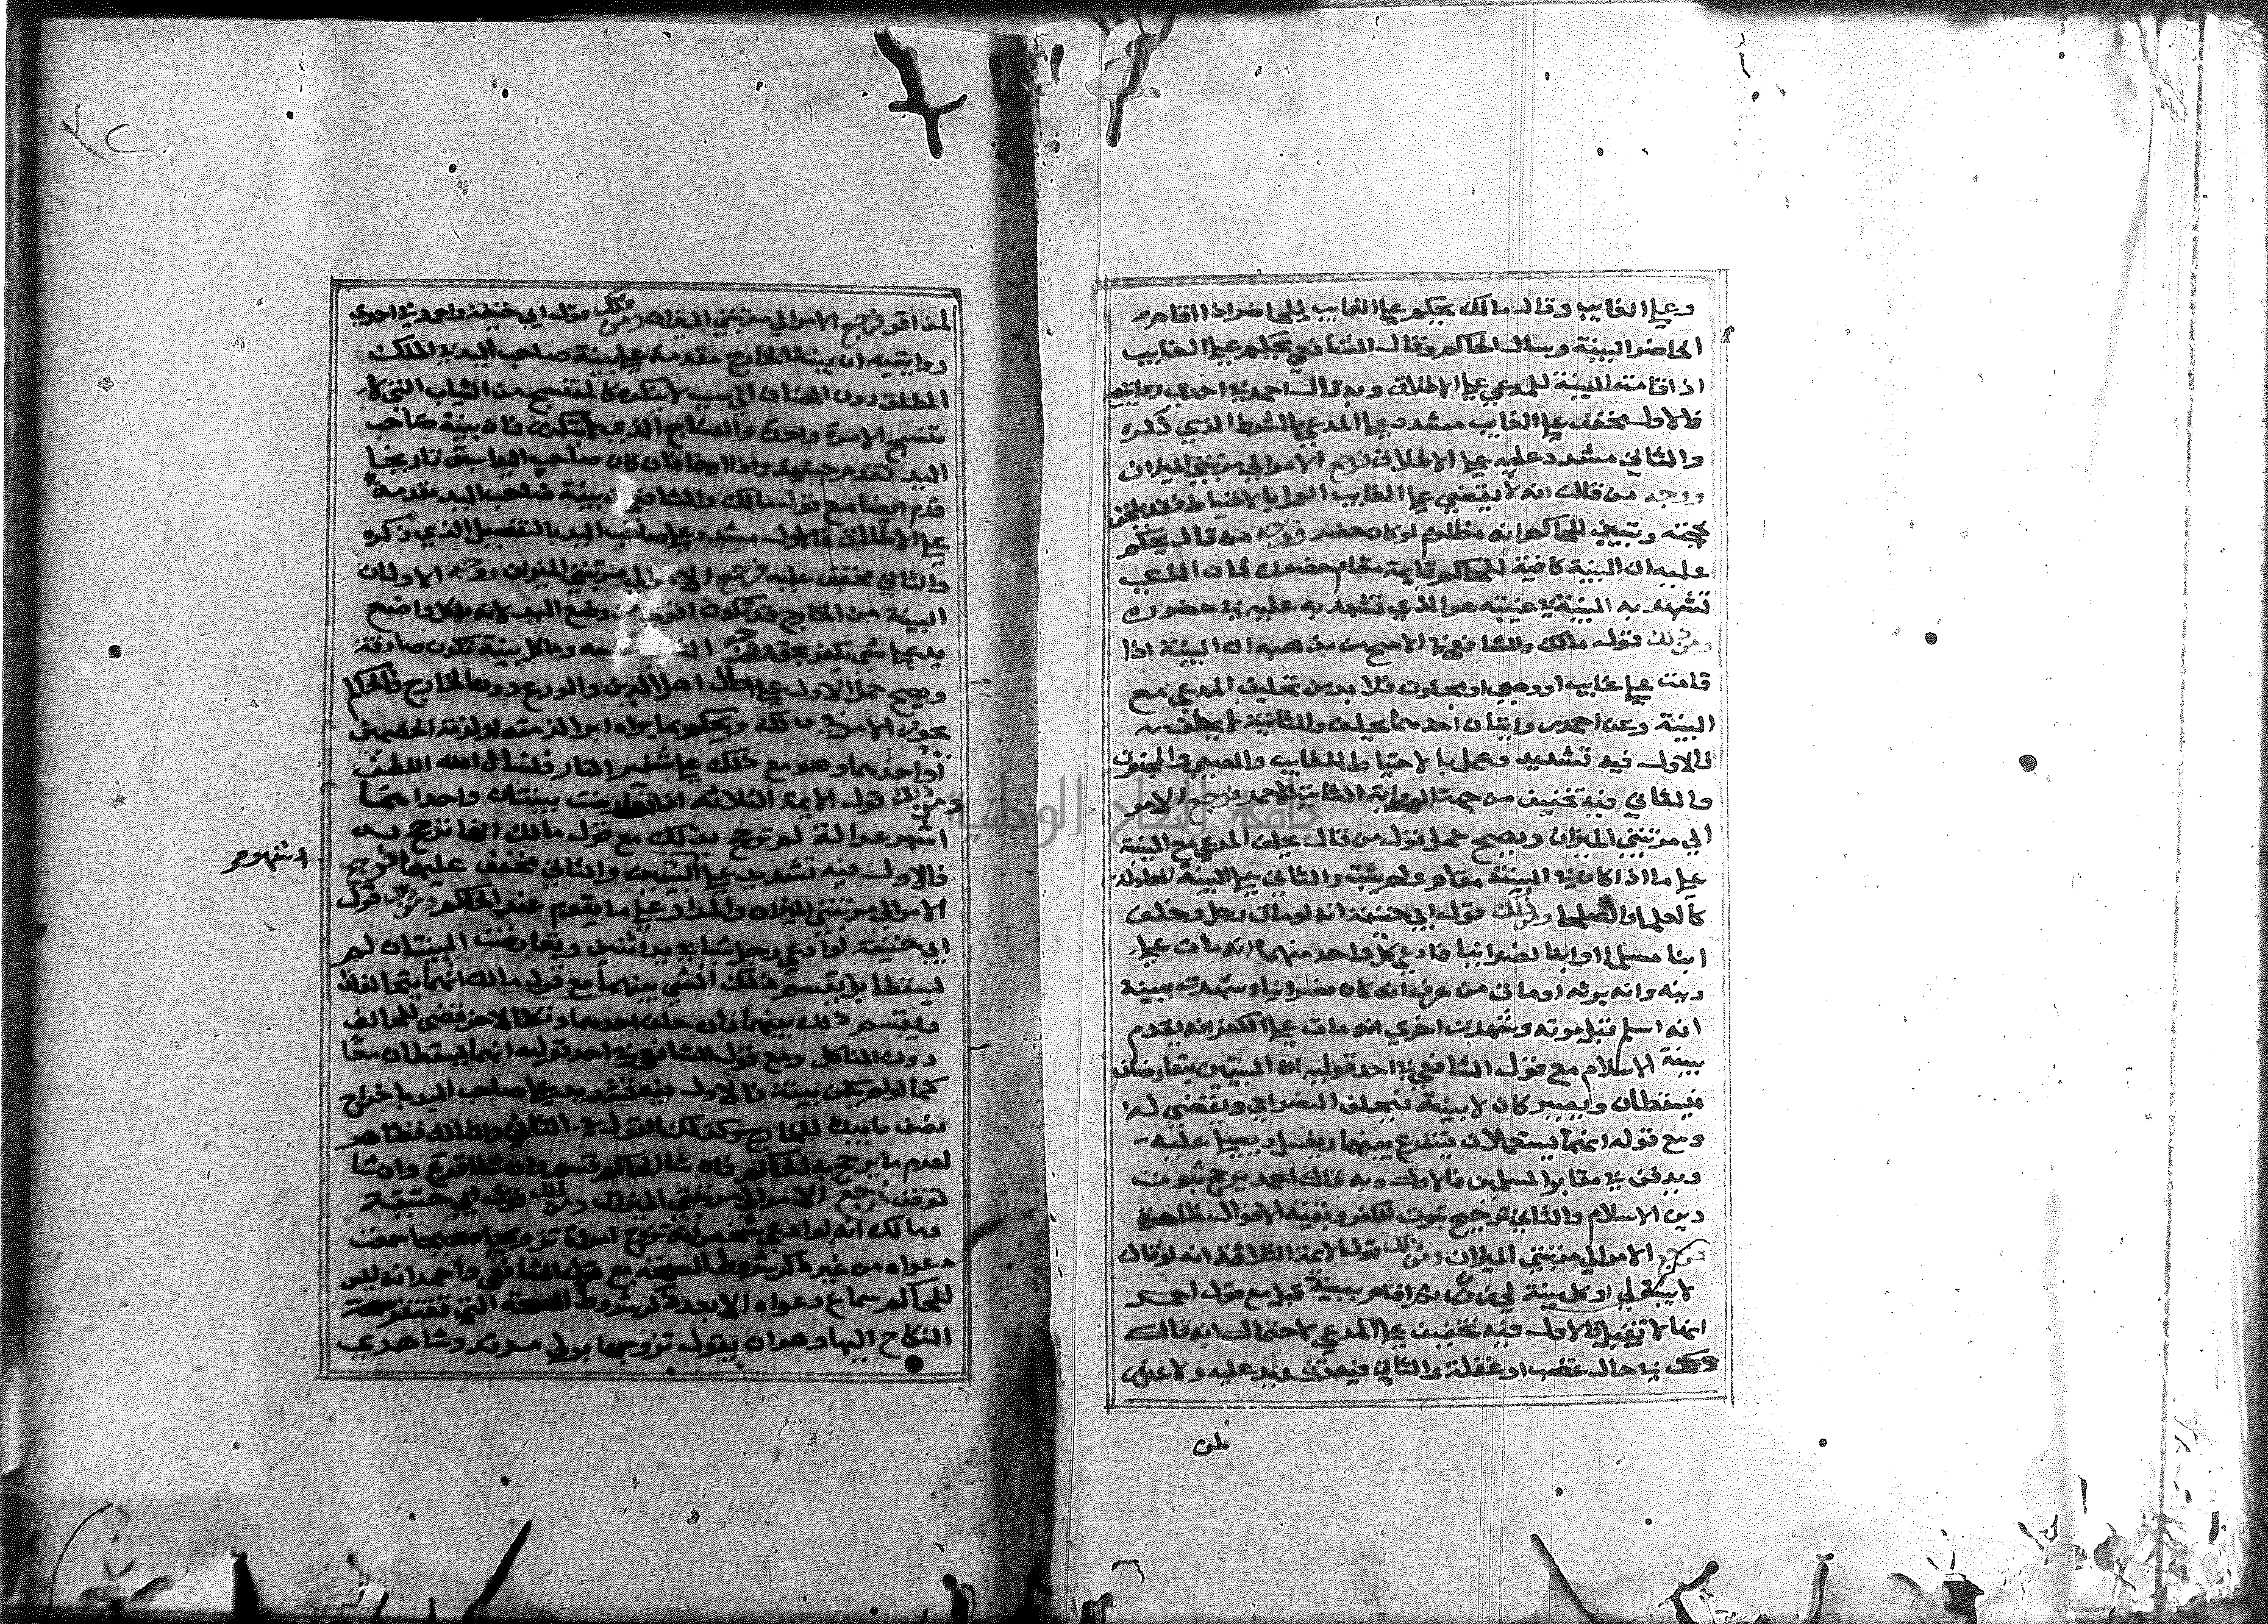 وعلي الغايب وقال مالك يحكم علي الغايب للحاضر اذا اقام
الحاضر البينة وسال الحاكم وقال الشافعي يحكم علي الغايب
اذا قامت البينة للمدعي علي الاطلاق وبه قال احمد في احدي روايتيه
فالاول مخفف علي الغايب مشدد علي المدعي بالشرط الذي ذكره
والثاني مشدد عليه علي الاطلاق فرجع الامر الي مرتبتي الميزان
ووجه من قال انه لا يقضي علي الغايب العمل بالاحتياط فقد يلحن
بحجته ويتبين للحاكم انه مظلوم لو كان حضر ووجه من قال يحكم
عليه ان البينة كافية للحاكم قايمة مقام حضوره لان الذي
تشهد به البينة في غيبته هو الذي تشهد به عليه في حضوره
ومن ذلك قول مالك والشافعي في الاصح من مذهبه ان البينة اذا
قامت علي غايب او وصبي او مجنون فلا بد من تحليف المدعي مع
البينة وعن احمد روايتان احدهما يحلف والثانية لا يحلف
فالاول فيه تشديد وعمل بالاحتياط للغايب والصبي والمجنون
والثاني فيه تخفيف من جهة الرواية الثانية لاحمد فرجع الامر
الي مرتبتي الميزان ويصح حمل قول من قال يحلف المدعي مع البينة
علي ما اذا كان في البينة مقام ولم يثبت والثاني علي البينة العادلة
كالعلما والصلحا ومن ذلك قول ابي حنيفة انه لو مات رجل وخلف
ابنا مسلما وابنا نصرانيا فادعي كل واحد منهما انه مات علي
دينه وانه يرثه او مات من عرف انه كان نصرانيا وشهدت بينة
انه اسلم قبل موته وشهدت اخري انه مات علي الكفر انه يقدم
بينة الاسلام مع قول الشافعي في احد قوليه ان البينتين يتعارضان
فيسقطان ويصير كان لا بينة فيحلف النصراني ويقضي له
ومع قوله انهما يستعملان يتقرع بينهما ويغسل ويصلي عليه
ويدفن في مقابر المسلمين فالاول وبه قال احمد يرجح ثبوت
دين الاسلام والثاني ترجيح ثبوت الكفر وبقية الاقوال ظاهرة
فرجع الامر الي مرتبتي الميزان ومن ذلك قول الايمة الثلاثة انه لو قال
لا بينة لي او كل بينة لي زور ثم اقام بينة قبل مع قول احمد
انها لا تقبل فالاول فيه تخفيف علي المدعي لاحتمال انه قال
ذلك في حال غضب او غفلة والثاني فيه تشديد عليه ولا عذر
لمن
لمن اقر فرجع الامر الي مرتبتي الميزان ومن ذلك قول ابي حنيفة واحمد في احدي
روايتيه ان بينة الخارج مقدمة علي بينة صاحب اليد في الملك
المطلق دون المضاف الي سبب لا يتكرر كالمنتسج من الثياب التي لا
تنسج الا مرة واحدة والنتاج الذي لا يتكرر فان بينة صاحب
اليد تقدم حينيذ واذا ارخا فان كان صاحب اليد اسبق تاريخا
قدم ايضا مع قول مالك والشافعي ان بينة صاحب اليد مقدمة
علي الاطلاق فالاول مشدد علي صاحب اليد بالتفصيل الذي ذكره
والثاني مخفف عليه فرجع الامر الي مرتبتي الميزان ووجه الاول ان
البينة من الخارج قد تكون اقوي من وضع اليد لانه ما كل واضع
يده علي شي يكون بحق ووجه نفسه وما كل بينة تكون صادقة
ويصح حمل الاول علي حال اهل الدين والورع دون الخارج فالحاكم
يحرر الامر في ذلك ويحكم بما يراه ابرا لذمته او لذمة الخصمين
او احدهما وهو مع ذلك علي شفير النار فنسال الله اللطف
ومن ذلك قول الايمة الثلاثه اذا تعارضت بينتان واحداهما
اشهر عدالة لم ترجح بذلك مع قول مالك انها ترجح به
فالاول فيه تشديد علي البينتين والثاني مخفف عليهما فرجع
الامر الي مرتبتي الميزان والمدار علي ما يقوم عند الحاكم ومن ذلك قول
ابي حنيفة لو ادعي رجل شيا في يد اثنين وتعارضت البينتان لم
يسقطا بل يقسم ذلك الشي بينهما مع قول مالك انهما يتحالفان
ويقتسم ذلك بينهما فان حلف احدهما ونكل الاخر قضي للحالف
دون الناكل ومع قول الشافعي في احد قوليه انهما يسقطان معا
كما لو لم يكن بينة فالاول فيه تشديد علي صاحب اليد باخراج
نصف ما بيده للخارج وكذلك القول في الثاني والثالث فظاهر
لعدم ما يرجح به الحاكم فان شا الحاكم قسم وان شا اقرع وان شا
توقف فرجع الامر الي مرتبتي الميزان ومن ذلك قول ابي حنيفة
ومالك انه لو ادعي شخص انه تزوج امراة تزويجا صحيحا سمعت
دعواه من غير ذكر شروط الصحة مع قول الشافعي واحمد انه ليس
للحاكم سماع دعواه الا بعد ذكر شروط الصحة التي تفتقر صحة
النكاح اليها وهو ان يقول تزوجها بولي مرشد وشاهدي